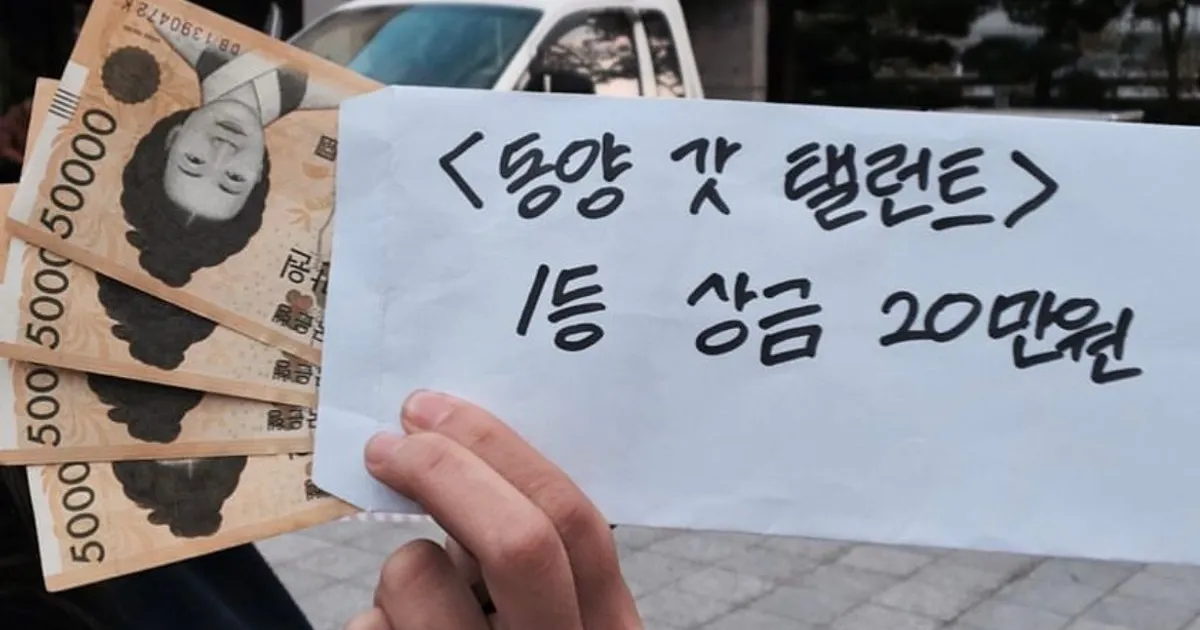 <동양 갓 탤런트>
1등 상금 20만원
DB1390472K
50000
5000
5000
5000